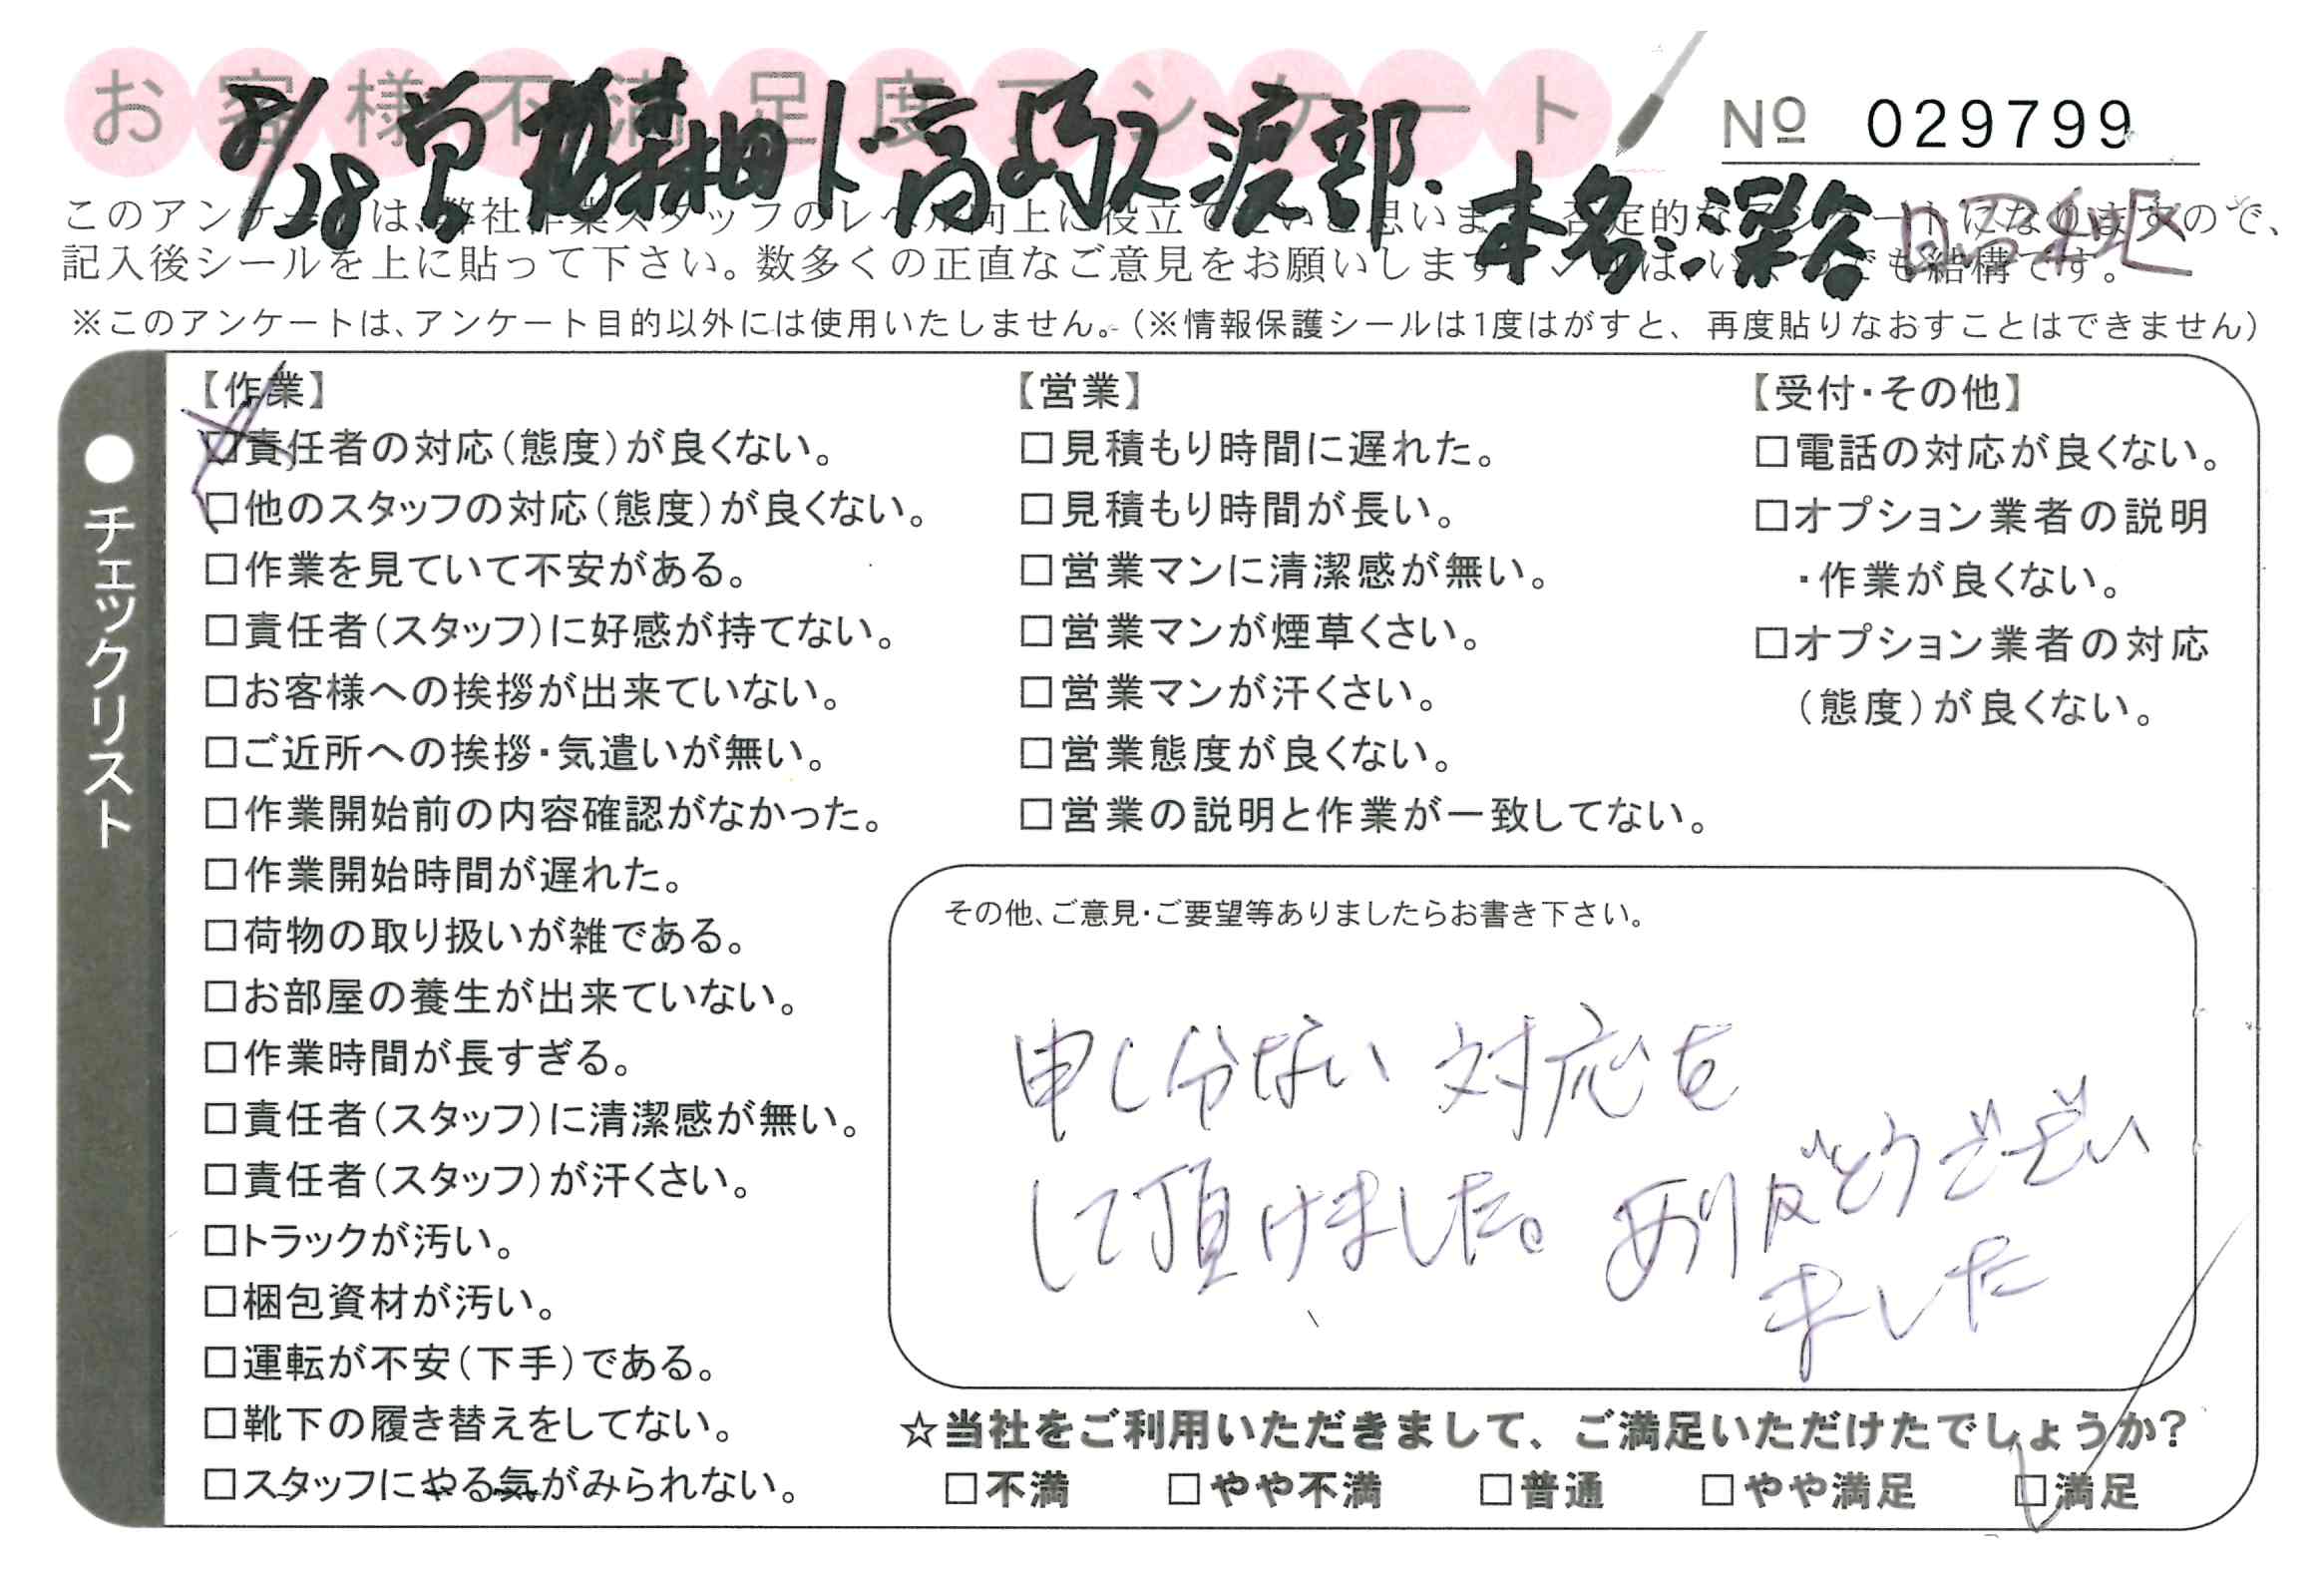 お客様不満足度アンケート
№ 029799
8/28 高 渡部 本名 深谷
このアンケートは、弊社作業スタッフのレベル向上に役立てたいと思います。否定的なアンケートになりますので、
記入後シールを上に貼って下さい。数多くの正直なご意見をお願いします。✓は、いくつでも結構です。
※このアンケートは、アンケート目的以外には使用いたしません。(※情報保護シールは1度はがすと、再度貼りなおすことはできません)
●チェックリスト
【作業】
□責任者の対応(態度)が良くない。
□他のスタッフの対応(態度)が良くない。
□作業を見ていて不安がある。
□責任者(スタッフ)に好感が持てない。
□お客様への挨拶が出来ていない。
□ご近所への挨拶・気遣いが無い。
□作業開始前の内容確認がなかった。
□作業開始時間が遅れた。
□荷物の取り扱いが雑である。
□お部屋の養生が出来ていない。
□作業時間が長すぎる。
□責任者(スタッフ)に清潔感が無い。
□責任者(スタッフ)が汗くさい。
□トラックが汚い。
□梱包資材が汚い。
□運転が不安(下手)である。
□靴下の履き替えをしてない。
□スタッフにやる気がみられない。
【営業】
□見積もり時間に遅れた。
□見積もり時間が長い。
□営業マンに清潔感が無い。
□営業マンが煙草くさい。
□営業マンが汗くさい。
□営業態度が良くない。
□営業の説明と作業が一致してない。
【受付・その他】
□電話の対応が良くない。
□オプション業者の説明
・作業が良くない。
□オプション業者の対応
(態度)が良くない。
その他、ご意見・ご要望等ありましたらお書き下さい。
申し分ない対応を
して頂けました。ありがとうございい
ました
☆当社をご利用いただきまして、ご満足いただけたでしょうか?
□不満 □やや不満 □普通 □やや満足 □満足